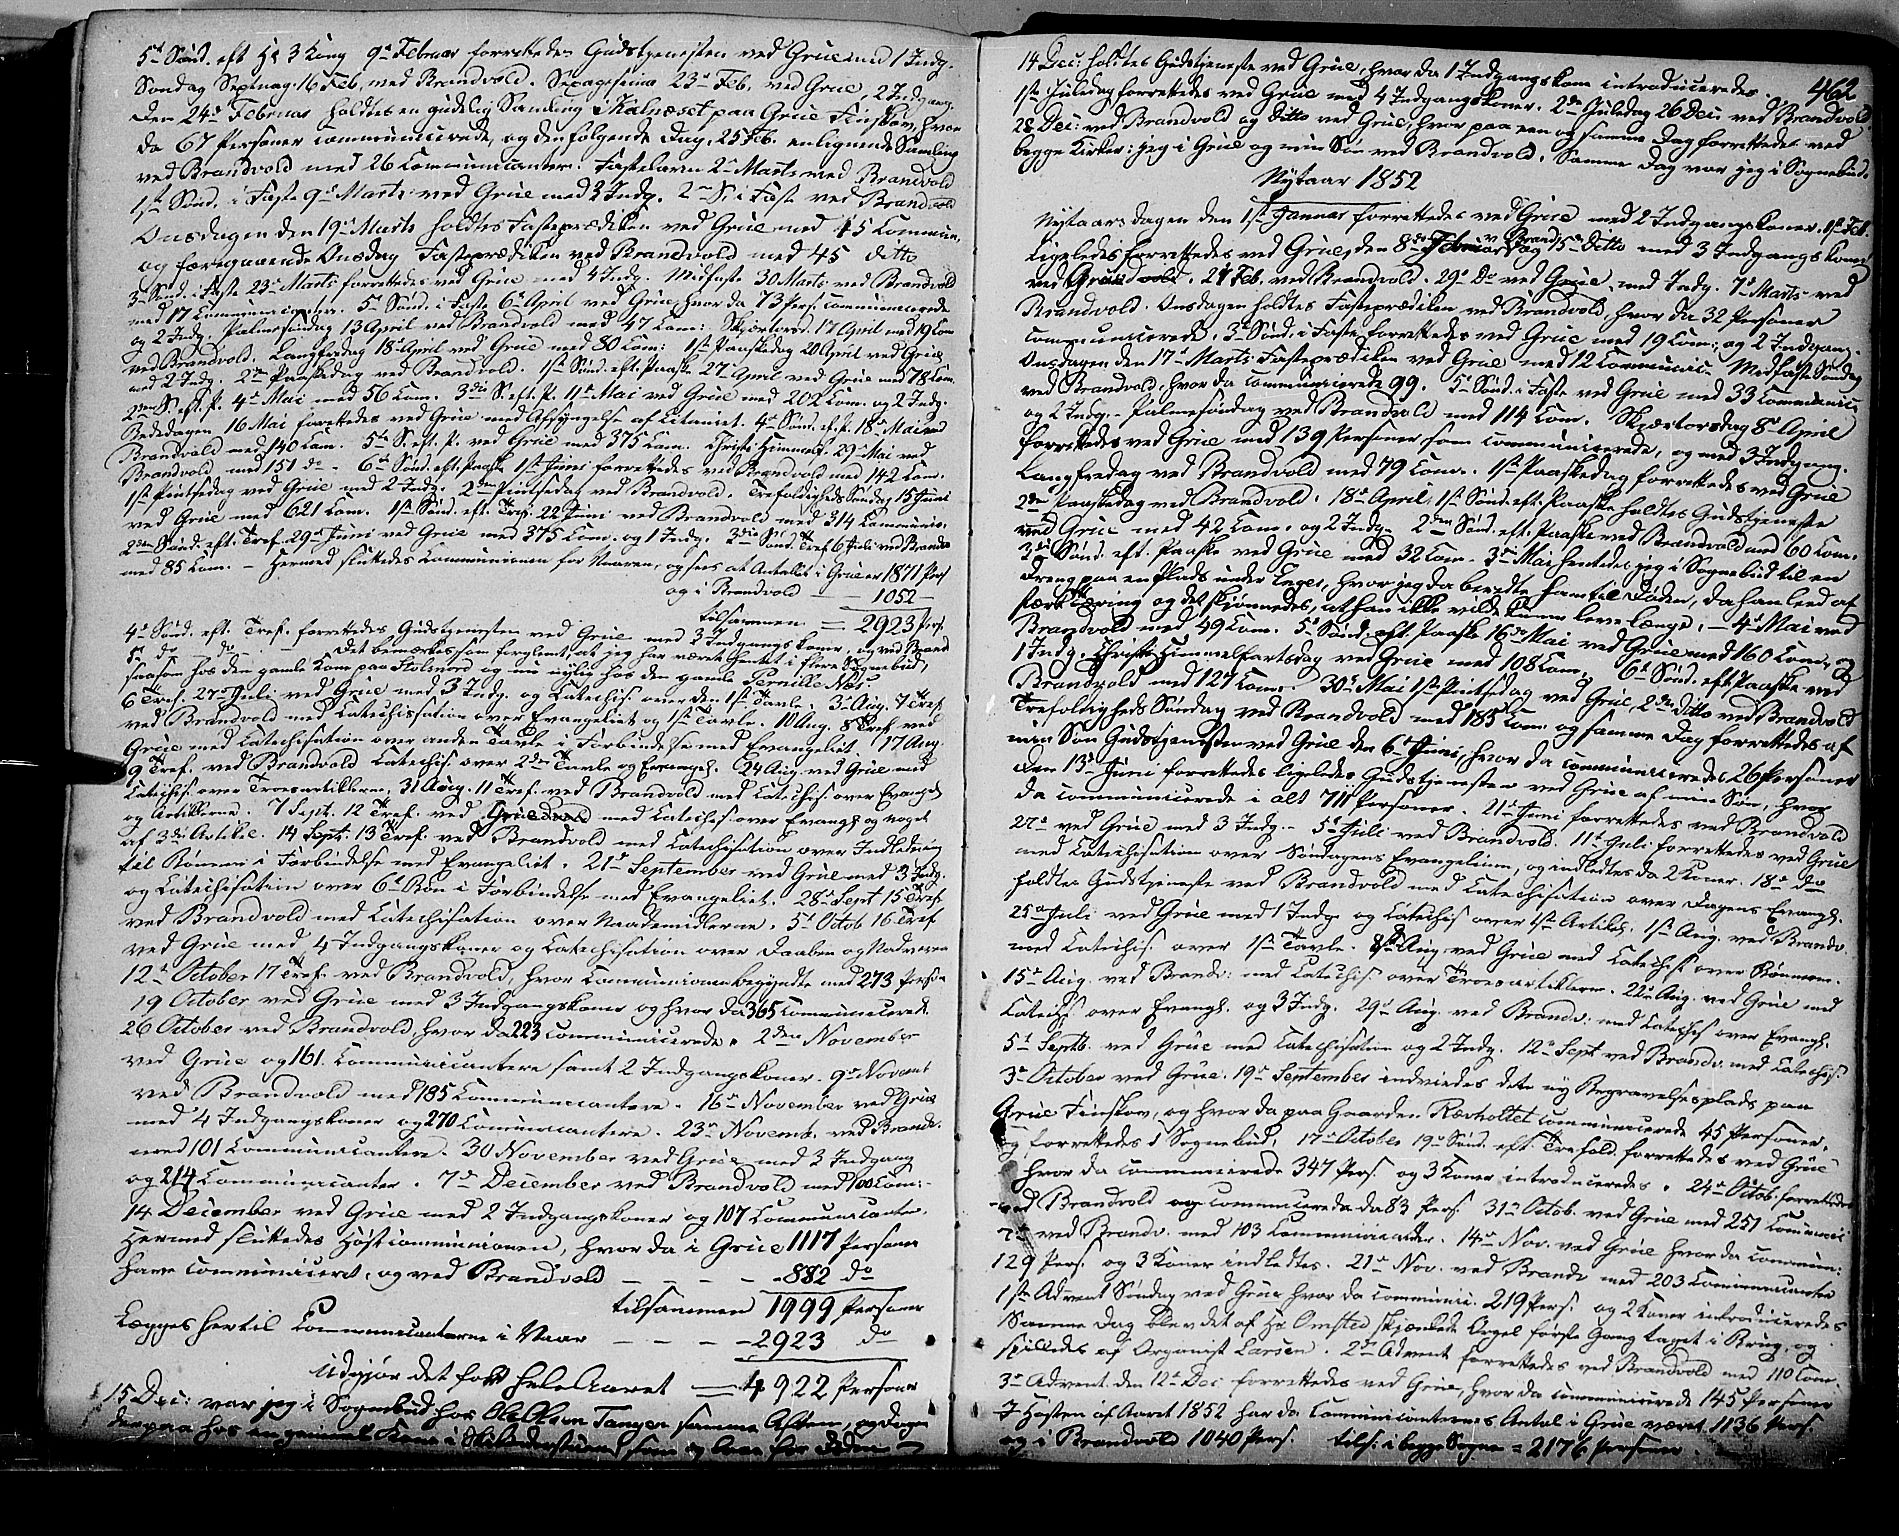 5te Sønd. eft. H: 3 Kong 9de Februar forrettedes Gudstjenesten ved Grue med 1 Indg.
Søndag Septuag. 16 Feb. ved Brandvold. Sexagesima 23de Feb. ved Grue, 2 Indgang.
Den 24de Februar holdtes en gudelig Samling i Kalnæset paa Grue Finskov, hvor
da 67 Personer communicerede, og den følgende Dag, 25 Feb. en lignende Samling
ved Brandvold med 26 Communicanter. Fastelavn 2de Marts ved Brandvold
1ste Sønd. i Faste 9de Marts ved Grue med 2 Indg. 2den S. i Faste ved Brandvold
Onsdagen den 19de Marts holdtes Fasteprædiken ved Grue med 45 Commun.
og foregaaende Onsdag Fasteprædiken ved Brandvold med 45 ditto
3die Sønd. i Faste 23de Marts forrettedes ved Grue med 4 Indg. Midfaste 30 Marts ved Brandvold
med 17 Communicanter. 5te Sønd. i Faste 6te April ved Grue, hvor da 73 Pers. communicerede
og 2 Indg. Palmesøndag 13 April ved Brandvold med 47 Com: Skjærtorsd. 17 April med 19 Com
ved Brandvold. Langfredag 18de April ved Grue med 80 Com: 1ste Paaskedag 20 April ved Grue
med 2 Indg. 2den Paaskedag ved Brandvold. 1ste Sønd. eft. Paaske 27 April ved Grue med 78 Com.
2den S. eft. P. 4de Mai med 56 Com. 3die S. eft. P. 11te Mai ved Grue med 202 Com. og 2 Indg.
Bededagen 16 Mai forrettedes ved Grue med Afsyngelse af Litaniet. 4de Sønd. ef. P. 18de Mai ved
Brandvold med 140 Com. 5te S. eft. P. ved Grue med 375 Com. Christi Himmelf. 29 Mai ved
Brandvold med 151 do – 6te Sønd. eft. Paaske 1ste Juni forrettedes ved Brandvold med 142 Com.
1ste Pintsedag ved Grue med 2 Indg. 2den Pintsedag ved Brandvold. Trefoldigheds Søndag 15 Juni
ved Grue med 621 Com. 1ste Sønd. eft. Tref. 22 Juni ved Brandvold med 314 Communic.
2den Sønd. eft. Tref. 29de Juni ved Grue med 375 Com. og 1 Indg. 3die Sønd. Tref. 6 Juli ved Brandv.
med 85 Com. – Hermed sluttedes Communionen for Vaaren, og sees at Antallet i Grue er 1871 Pers
og i Brandvold – – 1052 –
tilsammen = 2923 Pers.
4de Sønd. eft. Tref. forrettedes Gudstjenesten ved Grue med 3 Indgangskoner, og ved Brand
5te do – do – Det bemærkes, som forglemt, at jeg har været hentet i flere Sognebud,
saasom hos den gamle Kone paa Skolnord og nu nylig hos den gamle Pernille Næs
6 Tref. 27de Juli ved Grue med 3 Indg. og Catechis. over den 1ste Tavle. 3die Aug. 7 Tref
ved Brandvold med Catechisation over Evangeliet og 1ste Tavle. 10 Aug. 8 Tref. ved
Grue med Catechisation over anden Tavle i Forbindelse med Evangeliet. 17 Aug
9 Tref. ved Brandvold Catechis. over 2den Tavle og Evangel. 24 Aug. ved Grue med
Catechis. over Troesartiklerne. 31 Aug. 11 Tref. ved Brandvold med Catechis. over Evangel.
og Artiklerne. 7 Sept. 12 Tref. ved Grue med Catechis. over Evangl. og noget
af 3die Artikel. 14 Sept. 13 Tref. ved Brandvold med Catechisation over Indledning
til Bønnen i Forbindelse med Evangeliet. 21de September ved Grue med 3 Indg.
og Catechisation over 6te Bøn i Forbindelse med Evangeliet. 28de Sept 15 Tref
ved Brandvold med Catechisation over Naademidlerne. 5te Octob 16 Tref
ved Grue med 4 Indgangskoner og Catechisation over Daaben og Nadveren
12te October 17 Tref. ved Brandvold, hvor Communionen begyndte med 273 Person
19 October ved Grue med 3 Indgangskoner og hvor da 365 Communicerede.
26 October ved Brandvold, hvor da 223 communicerede. 2den November
ved Grue og 161 Communicantere samt 2 Indgangskoner. 9de Novemb
ved Brandvold med 185 Communicantere. 16de November ved Grue
med 4 Indgangskoner og 270 Communicantere. 23de Novemb. ved Brandv.
med 101 Communicantere. 30 November ved Grue med 3 Indgang
og 214 Communicanter. 7de December ved Brandvold med 100 Com:
14 December ved Grue med 2 Indgangskoner og 107 Communicanter.
Hermed sluttedes Høstcommunionen, hvor da i Grue 1117 Personer
have communiceret, og ved Brandvold – – – – 882 do
tilsammen 1999 Personer
Lægges hertil Communicanterne i Vaar – – – – 2923 do
Udgjør det for hele Aaret = 4922 Personer
15 Dec: var jeg i Sognebud hos Ole Olsen Tangen samme Aften, og Dagen
derpaa hos en gammel Kone i
462
14 Dec: holdtes Gudstjeneste ved Grue, hvor da 1 Indgangskone introduceredes.
1ste Juledag forrettedes ved Grue med 4 Indgangskoner. 2den Juledag 26 Dec: ved Brandvold
28 Dec: ved Brandvold og ditto ved Grue, hvor paa een og samme Dag forrettedes ved
begge Kirker: jeg i Grue og min Søn ved Brandvold. Samme Dag var jeg i Sognebud.
Nytaar 1852
Nytaarsdagen den 1ste Januar forrettedes ved Grue med 2 Indgangskoner. 1ste Feb.
ligeledes forrettedes ved Grue, den 8de Februar v. Brand, 15de ditto med 3 Indgangskoner
ved Grue. 24 Feb. ved Brandvold. 29de Do ved Grue, med Indg. 7de Marts ved
Brandvold. Onsdagen holdtes Fasteprædiken ved Brandvold, hvor da 32 Personer
communicerede. 3die Sønd. i Faste forrettedes ved Grue med 19 Com: og 2 Indgang.
Onsdagen den 17de Marts Fasteprædiken ved Grue med 12 Communic. Midfaste Søndag
ved Brandvold, hvor da communicerede 99. 5te Sønd. i Faste ved Grue med 33 Communic:
og 2 Indg. – Palmesøndag ved Brandvold med 114 Com. Skjærtorsdag 8de April
forrettedes ved Grue med 139 Personer som communicerede, og med 3 Indgang.
Langfredag ved Brandvold med 79 Com. 1ste Paaskedag forrettedes ved Grue
2den Paaskedag ved Brandvold. 18de April, 1ste Sønd. eft. Paaske holdtes Gudstjeneste
ved Grue med 42 Com. og 2 Indg. 2den Sønd. eft. Paaske ved Brandvold med 60 Com.
3die Sønd. eft. Paaske ved Grue med 32 Com. 3die Mai hentedes jeg i Sognebud til en
Dreng paa en Plads under Enger, hvor jeg da beredte ham til Døden, da han leed af
stærk Tæring og det skjønnedes, at han ikke vilde kunne leve længe. – 4de Mai ved
Brandvold med 49 Com. 5te Sønd. eft. Paaske 16de Mai ved Grue med 160 Com. og
1 Indg. Christi Himmelfartsdag ved Grue med 108 Com. 6te Sønd. eft. Paaske ved
Brandvold med 127 Com. 30te Mai 1ste Pintsedag ved Grue, 2den ditto ved Brandvold
Trefoldigheds Søndag ved Brandvold med 185 Com. og samme Dag forrettedes af
min Søn Gudstjenesten ved Grue den 6te Juni, hvor da communicerede 26 Personer
den 13de Juni forrettedes ligeledes Gudstjenesten ved Grue af min Søn, hvor
da communicerede i alt 711 Personer 21de Juni forrettedes ved Brandvold
27de ved Grue med 3 Indg. – 5te Juli ved Brandvold. 11te Juli forrettedes ved Grue
med Catechisation over Søndagens Evangelium, og indledtes da 2 Koner. 18de do
holdtes Gudstjeneste ved Brandvold med Catechisation over Dagens Evangl.
25de Juli ved Grue med 1 Indg. og Catechis. over 1ste Artikel. 1ste Aug. ved Brandv.
med Catechis. over 1ste Tavle. 8de Aug. ved Grue med Catechis. over Bønnen.
15de Aug. ved Brandv: med Catechis. over Troesartiklerne. 22de Aug. ved Grue med
Catechs. over Evangl. og 3 Indg. 29de Aug. ved Brandv: med Catechis. over Evangl.
5te Septb. ved Grue med Catechisation og 2 Indg. 12te Sept ved Brandv. med Catechis.
3die October ved Grue. 19de September indviedes dete ny Begravelsesplads paa
Grue Finskov, og hvor da paa Gaarden Rævholtet communicerede 45 Personer,
og forrettedes i Sognebud. 17de October 19de Sønd. eft. Trefold. forrettedes ved Grue
hvor da communicerede 347 Pers. og 3 Koner introduceredes. 24de Octob. forrettedes
ved Brandvold og communicerede da 83 Pers. 31te Octob. ved Grue med 251 Communic
7de ved Brandv. med 103 Communicanter. 14de Nov. ved Grue hvor da commun:
129 Pers. og 3 Koner indledtes. 21de Nov. ved Brandv med 203 Communicanter
1ste Advent Søndag ved Grue hvor da communic. 219 Pers. og 2 Koner introduceredes
Samme Dag blev det af Hr Omsted skjænkede Orgel første Gang taget i Brug, og
spilledes af Organist Larsen. 2den Advent forrettedes ved Brandvold med 110 Com.
3die Advent den 12te Dec forrettedes ved Grue, hvor da communicerede 145 Personer
I Høsten af Aaret 1852 har da Communicanternes Antal i Grue været 1136 Pers.
og i Brandvold 1040 Pers. tils: i begge Sogne = 2176 Personer.